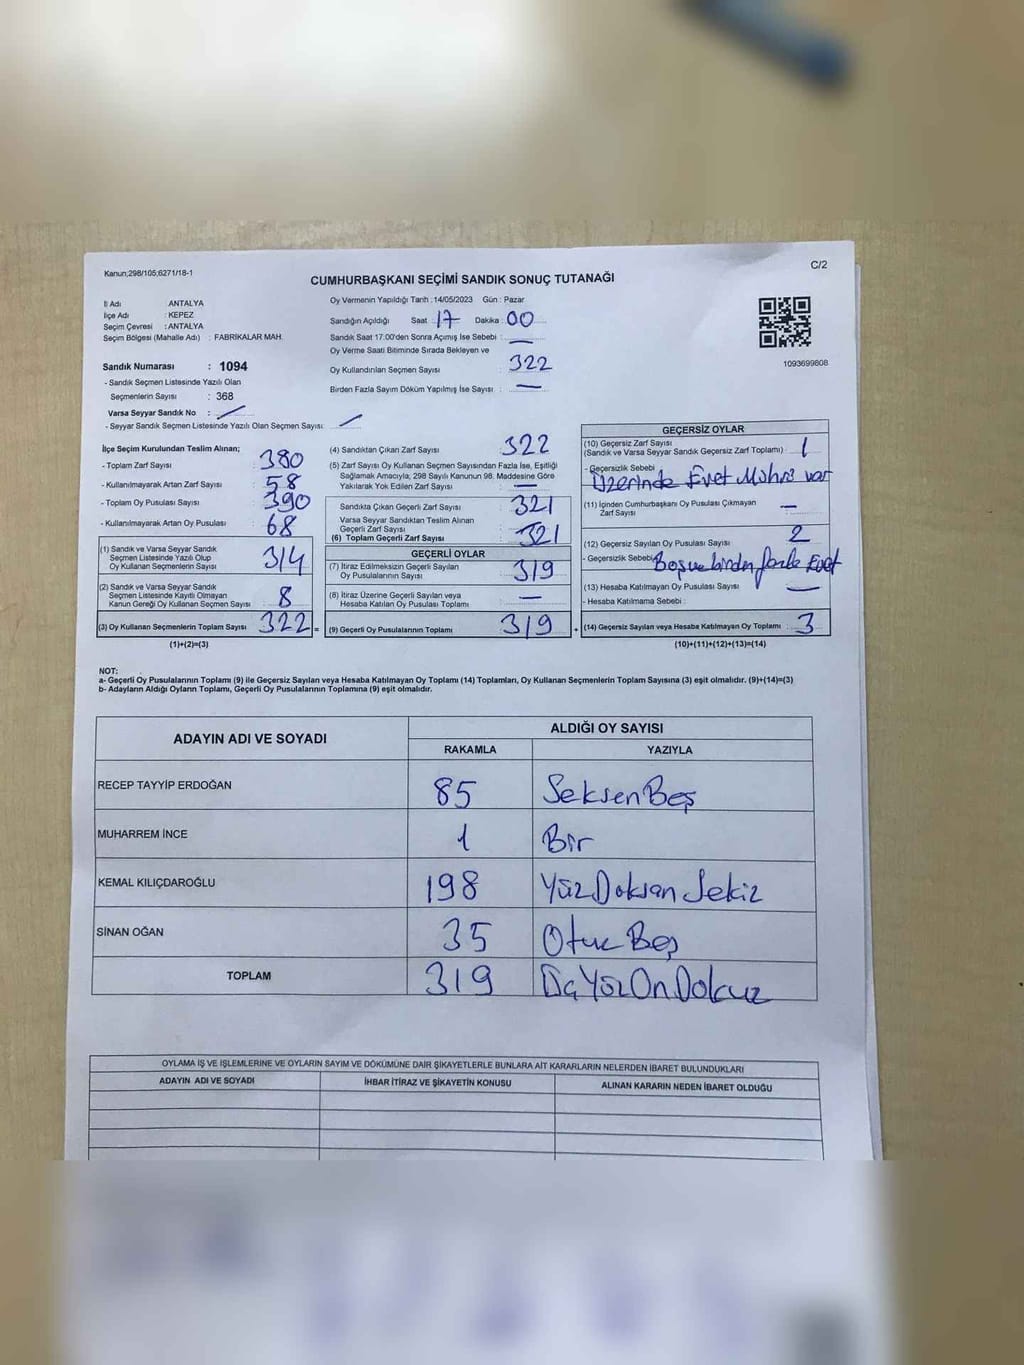 Kanun;298/105;6271/18-1
C/2
CUMHURBAŞKANI SEÇİMİ SANDIK SONUÇ TUTANAĞI
İl Adı : ANTALYA
İlçe Adı : KEPEZ
Seçim Çevresi : ANTALYA
Seçim Bölgesi (Mahalle Adı) : FABRİKALAR MAH.
Sandık Numarası : 1094
- Sandık Seçmen Listesinde Yazılı Olan
Seçmenlerin Sayısı : 368
Varsa Seyyar Sandık No :
- Seyyar Sandık Seçmen Listesinde Yazılı Olan Seçmen Sayısı:
Oy Vermenin Yapıldığı Tarih : 14/05/2023 Gün : Pazar
Sandığın Açıldığı Saat : 17 Dakika : 00
Sandık Saat 17.00'den Sonra Açımış İse Sebebi : —
Oy Verme Saati Bitiminde Sırada Bekleyen ve
Oy Kullandırılan Seçmen Sayısı : 322
Birden Fazla Sayım Döküm Yapılmış İse Sayısı : —
1093699808
İlçe Seçim Kurulundan Teslim Alınan;
- Toplam Zarf Sayısı 380
- Kullanılmayarak Artan Zarf Sayısı 58
- Toplam Oy Pusulası Sayısı 390
- Kullanılmayarak Artan Oy Pusulası 68
(1) Sandık ve Varsa Seyyar Sandık
Seçmen Listesinde Yazılı Olup
Oy Kullanan Seçmenlerin Sayısı 314
(2) Sandık ve Varsa Seyyar Sandık
Seçmen Listesinde Kayıtlı Olmayan
Kanun Gereği Oy Kullanan Seçmen Sayısı 8
(3) Oy Kullanan Seçmenlerin Toplam Sayısı 322 =
(1)+(2)=(3)
(4) Sandıktan Çıkan Zarf Sayısı 322
(5) Zarf Sayısı Oy Kullanan Seçmen Sayısından Fazla İse, Eşitliği
Sağlamak Amacıyla; 298 Sayılı Kanunun 98. Maddesine Göre
Yakılarak Yok Edilen Zarf Sayısı —
Sandıkta Çıkan Geçerli Zarf Sayısı 321
Varsa Seyyar Sandıktan Teslim Alınan
Geçerli Zarf Sayısı
(6) Toplam Geçerli Zarf Sayısı 321
GEÇERLİ OYLAR
(7) İtiraz Edilmeksizin Geçerli Sayılan
Oy Pusulalarının Sayısı 319
(8) İtiraz Üzerine Geçerli Sayılan veya
Hesaba Katılan Oy Pusulası Toplamı —
(9) Geçerli Oy Pusulalarının Toplamı 319 +
GEÇERSİZ OYLAR
(10) Geçersiz Zarf Sayısı
(Sandık ve Varsa Seyyar Sandık Geçersiz Zarf Toplamı) 1
- Geçersizlik Sebebi
Üzerinde Evet Mührü var
(11) İçinden Cumhurbaşkanı Oy Pusulası Çıkmayan
Zarf Sayısı —
(12) Geçersiz Sayılan Oy Pusulası Sayısı 2
- Geçersizlik Sebebi Boş ve birden fazla Evet
(13) Hesaba Katılmayan Oy Pusulası Sayısı —
- Hesaba Katılmama Sebebi :
(14) Geçersiz Sayılan veya Hesaba Katılmayan Oy Toplamı 3
(10)+(11)+(12)+(13)=(14)
NOT:
a- Geçerli Oy Pusulalarının Toplamı (9) ile Geçersiz Sayılan veya Hesaba Katılmayan Oy Toplamı (14) Toplamları, Oy Kullanan Seçmenlerin Toplam Sayısına (3) eşit olmalıdır. (9)+(14)=(3)
b- Adayların Aldığı Oyların Toplamı, Geçerli Oy Pusulalarının Toplamına (9) eşit olmalıdır.
ADAYIN ADI VE SOYADI ALDIĞI OY SAYISI
RAKAMLA YAZIYLA
RECEP TAYYİP ERDOĞAN 85 Seksen Beş
MUHARREM İNCE 1 Bir
KEMAL KILIÇDAROĞLU 198 Yüz Doksan Sekiz
SİNAN OĞAN 35 Otuz Beş
TOPLAM 319 Üç Yüz On Dokuz
OYLAMA İŞ VE İŞLEMLERİNE VE OYLARIN SAYIM VE DÖKÜMÜNE DAİR ŞİKAYETLERLE BUNLARA AİT KARARLARIN NELERDEN İBARET BULUNDUKLARI
ADAYIN ADI VE SOYADI İHBAR İTİRAZ VE ŞİKAYETİN KONUSU ALINAN KARARIN NEDEN İBARET OLDUĞU